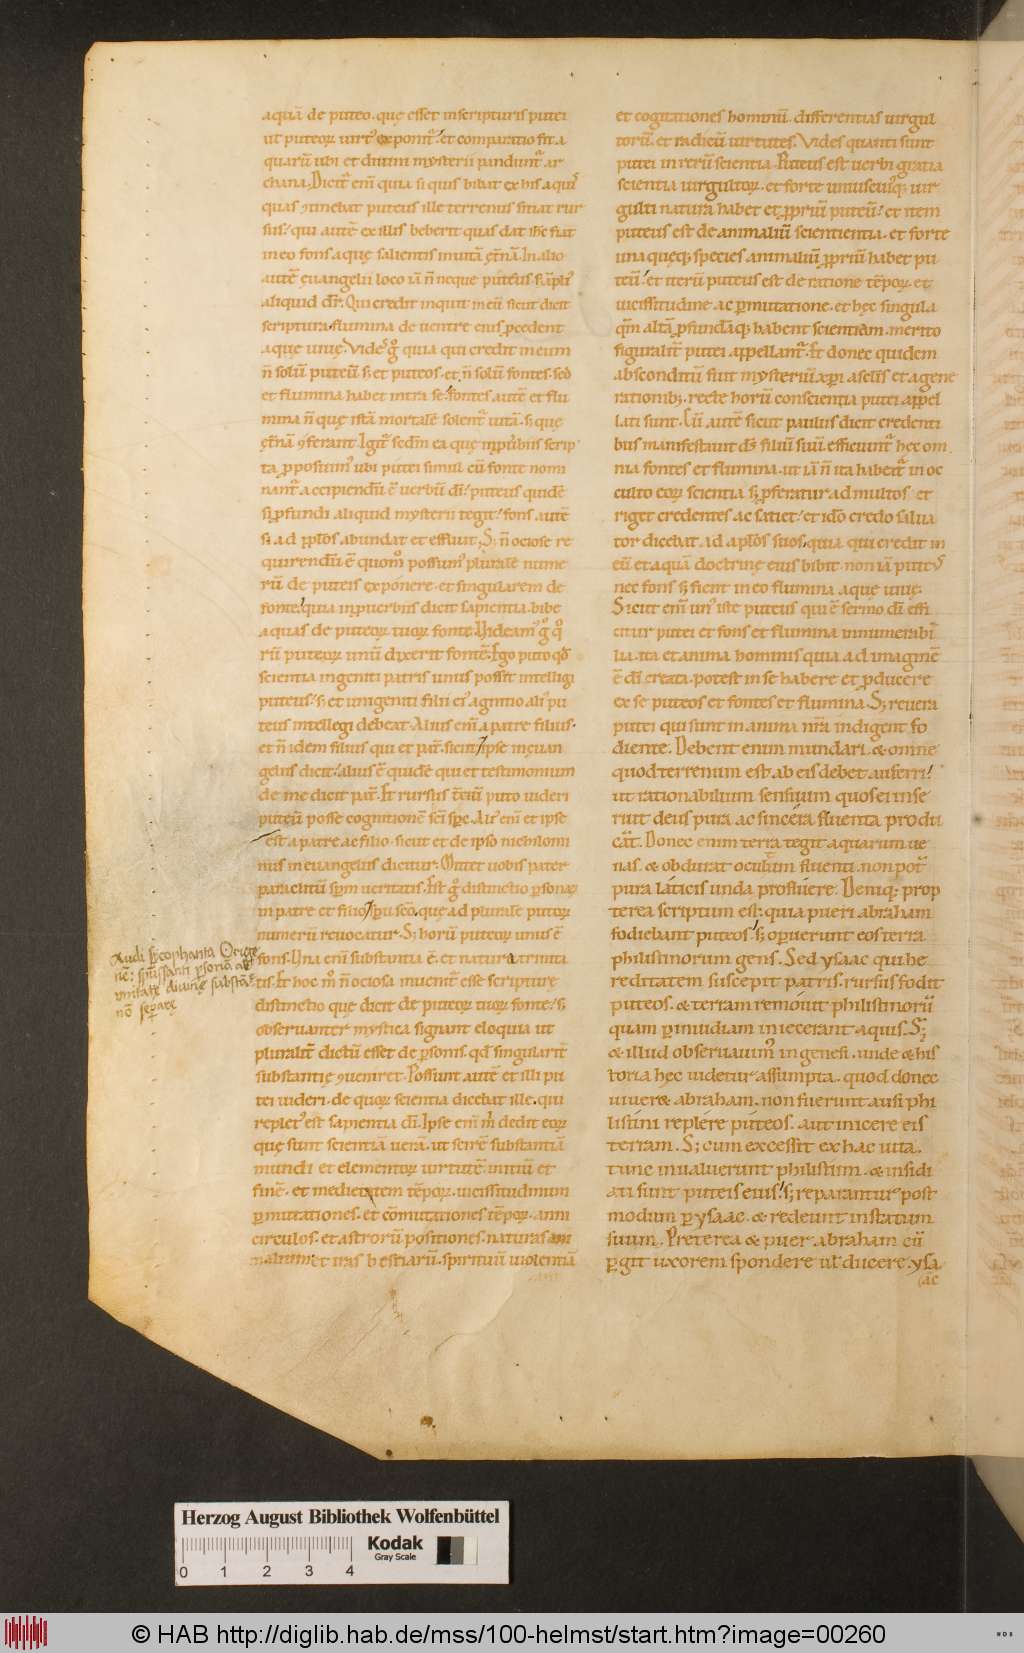 aquā de puteo. quę esset inscripturis putei
ut puteoꝝ uirtꝰ exponit᷑. et comparatio fit a
quarū ubi et diuini mysterii pandunt᷑ ar
chana. Dicit᷑ em̄ quia si quis bibat ex his aquis
quas ꝯtinebat puteus ille terrenus sitiat rur
sus. qui autē ex illis biberit quas dat ihc̄ fiat
in eo fons aquę salientis inuitā ęt̄nā. In alio
autē ęuangelii loco iā n̄ neque puteus. s; āpliꝰ
aliquid dr̄. Qui credit inquit in eū sicut dicit
scriptura flumina de uentre eius ꝓcedent
aquę uiuę. Vides gͦ quia qui credit in eum
n̄ solū puteū s; et puteos. et n̄ solū fontes. sed
et flumina habet intra se. fontes autē et flu
mina n̄ quę istā mortalē solent᷑ uitā. s; quę
ęt̄nā ꝯferant. Igit᷑ sc̄dm ea quę inꝓuerbiis scrip
ta ꝓposuimꝰ ubi putei simul cū fonte nomi
nant᷑ accipiendū ē uerbū dī. puteus quidē
si ꝓfundi aliquid mysterii tegit. fons autē
si ad ꝓplōs abundat et effluit. S; n̄ ociose re
quirendū ē quomͦ possumꝰ plurale nume
rū de puteis exponere. et singularem de
fonte. quia inꝓuerbiis dicit sapientia. bibe
aquas de puteoꝝ tuoꝝ fonte. Videamꝰ gͦ qͦ
rū puteoꝝ unū dixerit fontē. Ego puto qđ
scientia ingeniti patris unus possit intelligi
puteus. s; et unigeniti filii eiꝰ agnitio aliꝰ pu
teus intellegi debeat. Alius em̄ a patre filius.
et n̄ idem filius qui et pat᷑. sicut ipse in ęuan
geliis dicit. alius ē quidē qui et testimonium
de me dicit pat᷑. Et rursus t̄ciū puto uideri
puteū posse cognitionē sc̄i sp̄c. Aliꝰ em̄ et ipse
est a patre ac filio. sicut et de ipso nichilomi
nus in euangeliis dicitur. Mittet uobis pater
paraclitū sp̄m ueritatis. Est gͦ distinctio ꝑsonaꝝ
in patre et filio sp̄u sc̄o. quę ad plurale puteoꝝ
numerū reuocatur. S; horū puteoꝝ unus ē
fons. Una em̄ substantia ē. et natura trinita
tis. Et hoc mͦ n̄ ociosa inuenit᷑ esse scripturę
distinctio quę dicit de puteoꝝ tuoꝝ fonte. s;
obseruanter mystica signant eloquia ut
pluralit᷑ dictū esset de ꝑsonis. qđ singularit᷑
substantię ꝯueniret. Possunt autē et illi pu
tei uideri. de quoꝝ scientia dicebat ille. qui
repletꝰ est sapientia dī. Ipse em̄ m̄ dedit eoꝝ
quę sunt scientiā uerā. ut scirē substantiā
mundi et elementoꝝ uirtutē. initiū et
finē. et medietatem tēpoꝝ. uicissitudinum
ꝑmutationes. et cōmutationes tēpoꝝ. anni
circulos. et astrorū positiones. naturas ani
malium et iras bestiarū. spirituū uiolentiā
Audi sycophanta Orige
nē: spūssancti ꝑsonā ab
vnitate diuinę substāē
nō seꝑare
et cogitationes hominū. differentias uirgul
torū. et radicū uirtutes. Vides quanti sunt
putei in rerū scientia. Puteus est uerbi gratia
scientia uirgultoꝝ. et forte uniuscuiꝰq; uir
gulti natura habet et ꝓpriū puteū. et item
puteus est de animaliū scientientia. et forte
una quęq; species animaliū ꝓpriū habet pu
teū. et iterū puteus est de ratione tēpoꝝ. et
uicissitudine ac ꝑmutatione. et hęc singula
qm̄ altā ꝓfundāq; habent scientiam. merito
figuralit᷑ putei appellant᷑. Et donec quidem
absconditū fuit mysteriū xp̄i asclis et agene
rationib;. recte horū conscientia putei appel
lati sunt. Cū autē sicut paulus dicit credenti
bus manifestauit dś filiū suū. efficiunt᷑ hęc om
nia fontes et flumina. ut iā n̄ ita habeat᷑ in oc
culto eoꝝ scientia s; ꝓferatur ad multos et
riget credentes ac satiet. et ideo credo salua
tor dicebat ad aplōs suos. quia qui credit in
eū et aquā doctrinę eius bibit. non iā puteus
nec fons s; fient in eo flumina aquę uiuę.
Sicut em̄ unꝰ iste puteus qui ē sermo dī effi
citur putei et fons et flumina innumerabi
lia. ita et anima hominis quia ad imaginē
ē dī creata. potest in se habere et ꝓducere
ex se puteos et fontes et flumina. S; reuera
putei qui sunt in anima nr̄a indigent fo
diente. Debent enim mundari. & omne
quod terrenum est ab eis debet auferri.
ut rationabilium sensuum quos ei inse
ruit deus pura ac sincera fluenta produ
cāt. Donec enim terra tegit aquarum ue
nas. & obdurat oculum fluenti. non pot᷑
pura laticis unda profluere. Deniq; prop
terea scriptum est: quia pueri abraham
fodiebant puteos. s; oꝑuerunt eos terra
philistinorum gens. Sed ysaac qui he
reditatem suscepit patris. rursus fodit
puteos. & terram remouit philistinorū
quam ꝑ inuidiam iniecerant aquis. S;
& illud obseruauimꝰ in genesi. unde & his
toria hęc uidetur assumpta. quod donec
uiueret abraham. non fuerunt ausi phi
listini replere puteos. aut inicere eis
terram. S; cum excessit ex hac uita.
tunc inualuerunt philistim. & insidi
ati sunt puteis eius. s; reparantur post
modum ꝑ ysaac. & redeunt instatum
suum. Preterea & puer abraham cū
ꝑgit uxorem spondere ul̄ ducere. ysa
(ac
Herzog August Bibliothek Wolfenbüttel
Kodak
Gray Scale
0 1 2 3 4
© HAB http://diglib.hab.de/mss/100-helmst/start.htm?image=00260